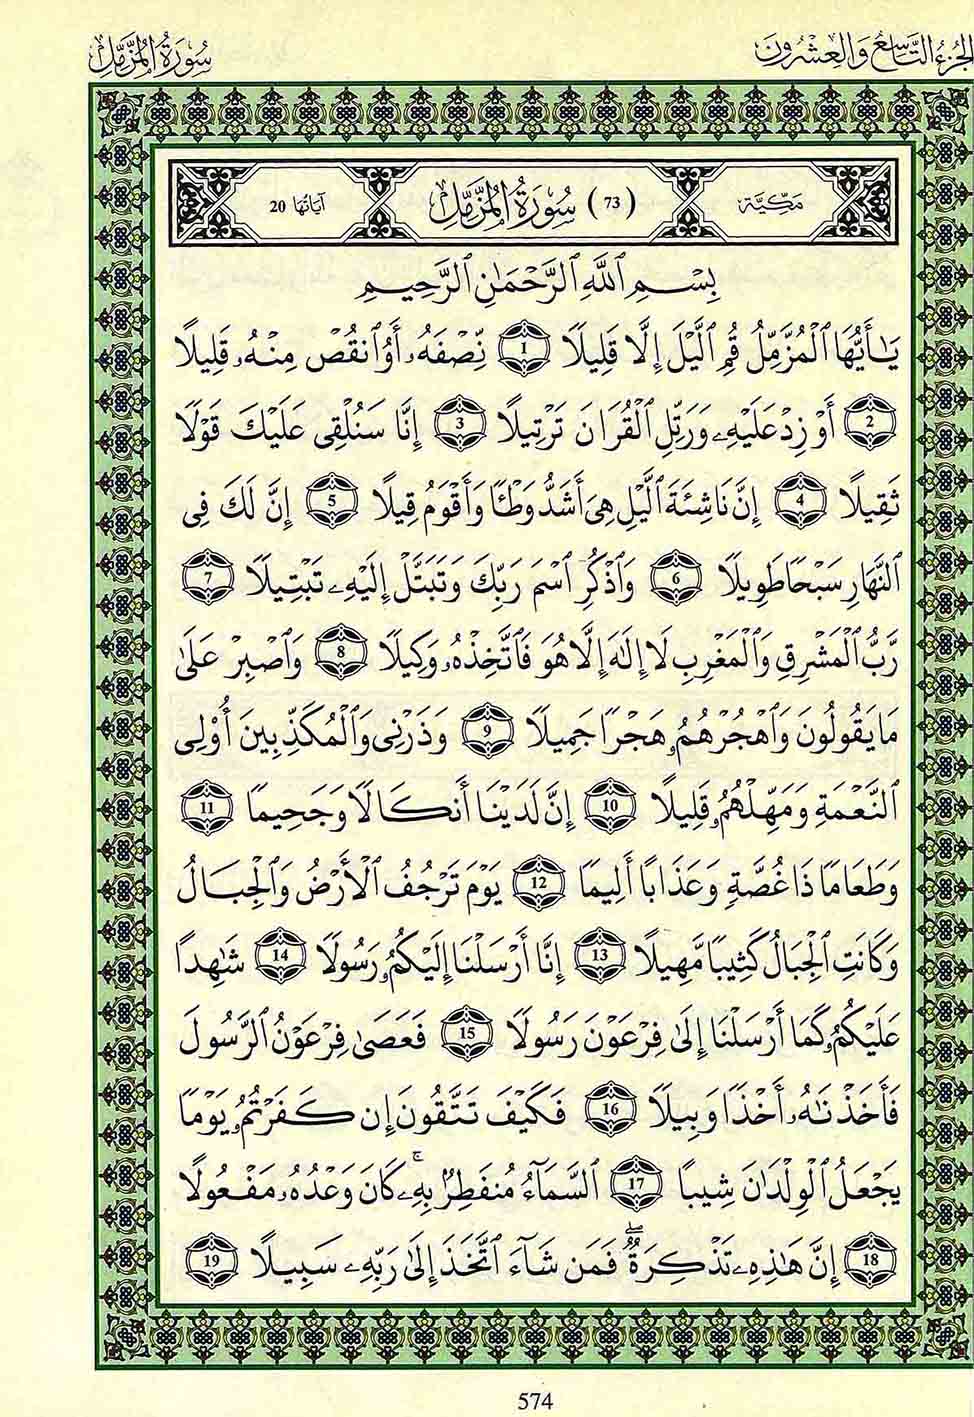 الجزء التاسع والعشرون
سورة المزمل
مكية
(73) سورة المزمل
آياتها 20
بِسْمِ ٱللَّهِ ٱلرَّحْمَٰنِ ٱلرَّحِيمِ
يَٰأَيُّهَا ٱلْمُزَّمِّلُ قُمِ ٱلَّيْلَ إِلَّا قَلِيلًا 1 نِّصْفَهُۥ أَوُ ٱنقُصْ مِنْهُۥ قَلِيلًا
2 أَوْ زِدْ عَلَيْهِۦ وَرَتِّلِ ٱلْقُرَانَ تَرْتِيلًا 3 إِنَّا سَنُلْقِى عَلَيْكَ قَوْلًا
ثَقِيلًا 4 إِنَّ نَاشِئَةَ ٱلَّيْلِ هِىَ أَشَدُّ وَطْـًٔا وَأَقْوَمُ قِيلًا 5 إِنَّ لَكَ فِى
ٱلنَّهَارِ سَبْحًا طَوِيلًا 6 وَٱذْكُرِ ٱسْمَ رَبِّكَ وَتَبَتَّلْ إِلَيْهِۦ تَبْتِيلًا 7
رَّبُّ ٱلْمَشْرِقِ وَٱلْمَغْرِبِ لَا إِلَٰهَ إِلَّا هُوَ فَٱتَّخِذْهُۥ وَكِيلًا 8 وَٱصْبِرْ عَلَىٰ
مَا يَقُولُونَ وَٱهْجُرْهُمُۥ هَجْرًا جَمِيلًا 9 وَذَرْنِى وَٱلْمُكَذِّبِينَ أُوْلِى
ٱلنَّعْمَةِ وَمَهِّلْهُمُۥ قَلِيلًا 10 إِنَّ لَدَيْنَا أَنكَالًا وَجَحِيمًا 11
وَطَعَامًا ذَا غُصَّةٍ وَعَذَابًا أَلِيمًا 12 يَوْمَ تَرْجُفُ ٱلْأَرْضُ وَٱلْجِبَالُ
وَكَانَتِ ٱلْجِبَالُ كَثِيبًا مَّهِيلًا 13 إِنَّا أَرْسَلْنَا إِلَيْكُمُۥ رَسُولًا 14 شَٰهِدًا
عَلَيْكُمُۥ كَمَا أَرْسَلْنَا إِلَىٰ فِرْعَوْنَ رَسُولًا 15 فَعَصَىٰ فِرْعَوْنُ ٱلرَّسُولَ
فَأَخَذْنَٰهُۥ أَخْذًا وَبِيلًا 16 فَكَيْفَ تَتَّقُونَ إِن كَفَرْتُمُۥ يَوْمًا
يَجْعَلُ ٱلْوِلْدَٰنَ شِيبًا 17 ٱلسَّمَآءُ مُنفَطِرٌۢ بِهِۦۚ كَانَ وَعْدُهُۥ مَفْعُولًا
18 إِنَّ هَٰذِهِۦ تَذْكِرَةٌۖ فَمَن شَآءَ ٱتَّخَذَ إِلَىٰ رَبِّهِۦ سَبِيلًا 19
574